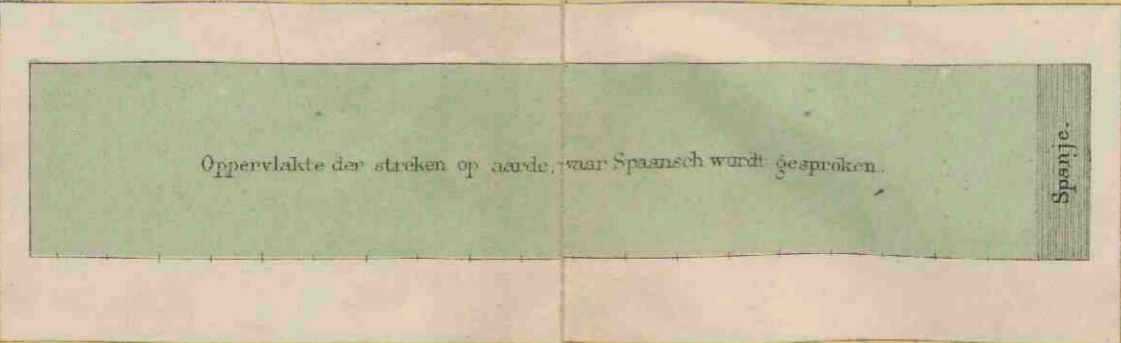 Oppervlakte der streken op aarde, waar Spaansch wordt gesproken.
Spanje.